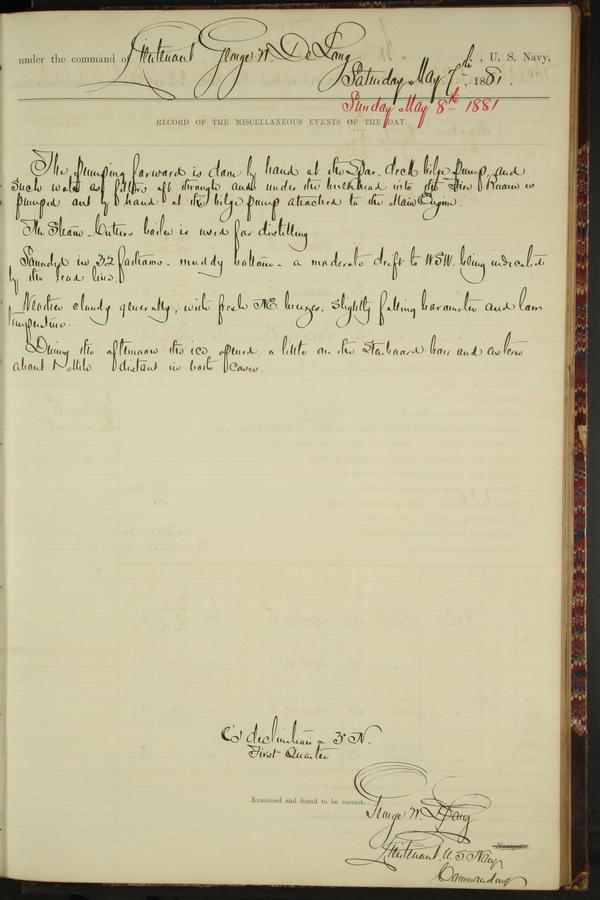 under the command of Lieutenant George W. De Long
Saturday May 7th, 1881.
, U. S. Navy,
Sunday May 8th 1881
RECORD OF THE MISCELLANEOUS EVENTS OF THE DAY.
The pumping forward is done by hand at the Spar deck bilge pump, and
such water as filters aft through and under the bulkhead into the Fire Room is
pumped out by hand at the bilge pump attached to the Main Engine.
The Steam-Cutter's boiler is used for distilling.
Sounded in 32 fathoms - muddy bottom - a moderate drift to WSW. being indicated
by the lead line.
Weather cloudy generally, with fresh NE breezes, slightly falling barometer and low
temperature.
During the afternoon the ice opened a little on the Starboard bow and astern
about distant in both cases.
declination = 3° N.
First Quarter
Examined and found to be correct.
George W. De Long
Navigator.
Lieutenant U. S. Navy
Commanding